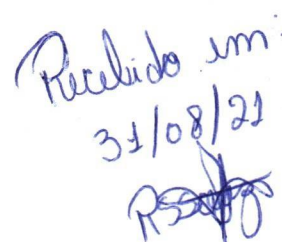 Recebido em:
31/08/21